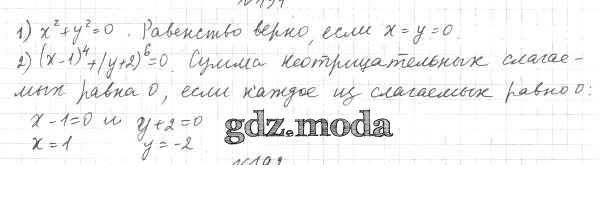 1) x²+y²=0. Равенство верно, если x=y=0.
2) (x-1)⁴+(y+2)⁶=0. Сумма неотрицательных слагае-
мых равна 0, если каждое из слагаемых равно 0:
x-1=0 и y+2=0
gdz.moda
x=1 y=-2